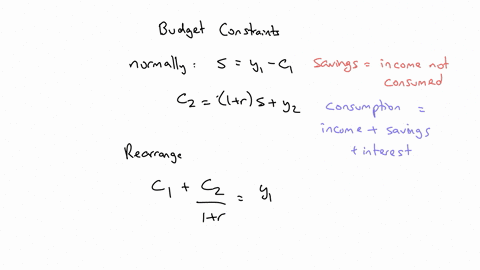 Budget Constraints
normally: S = y₁ - C₁ Savings = income not consumed
C₂ = (1+r) S + y₂ consumption = income + savings + interest
Rearrange
C₁ + C₂/1+r = y₁